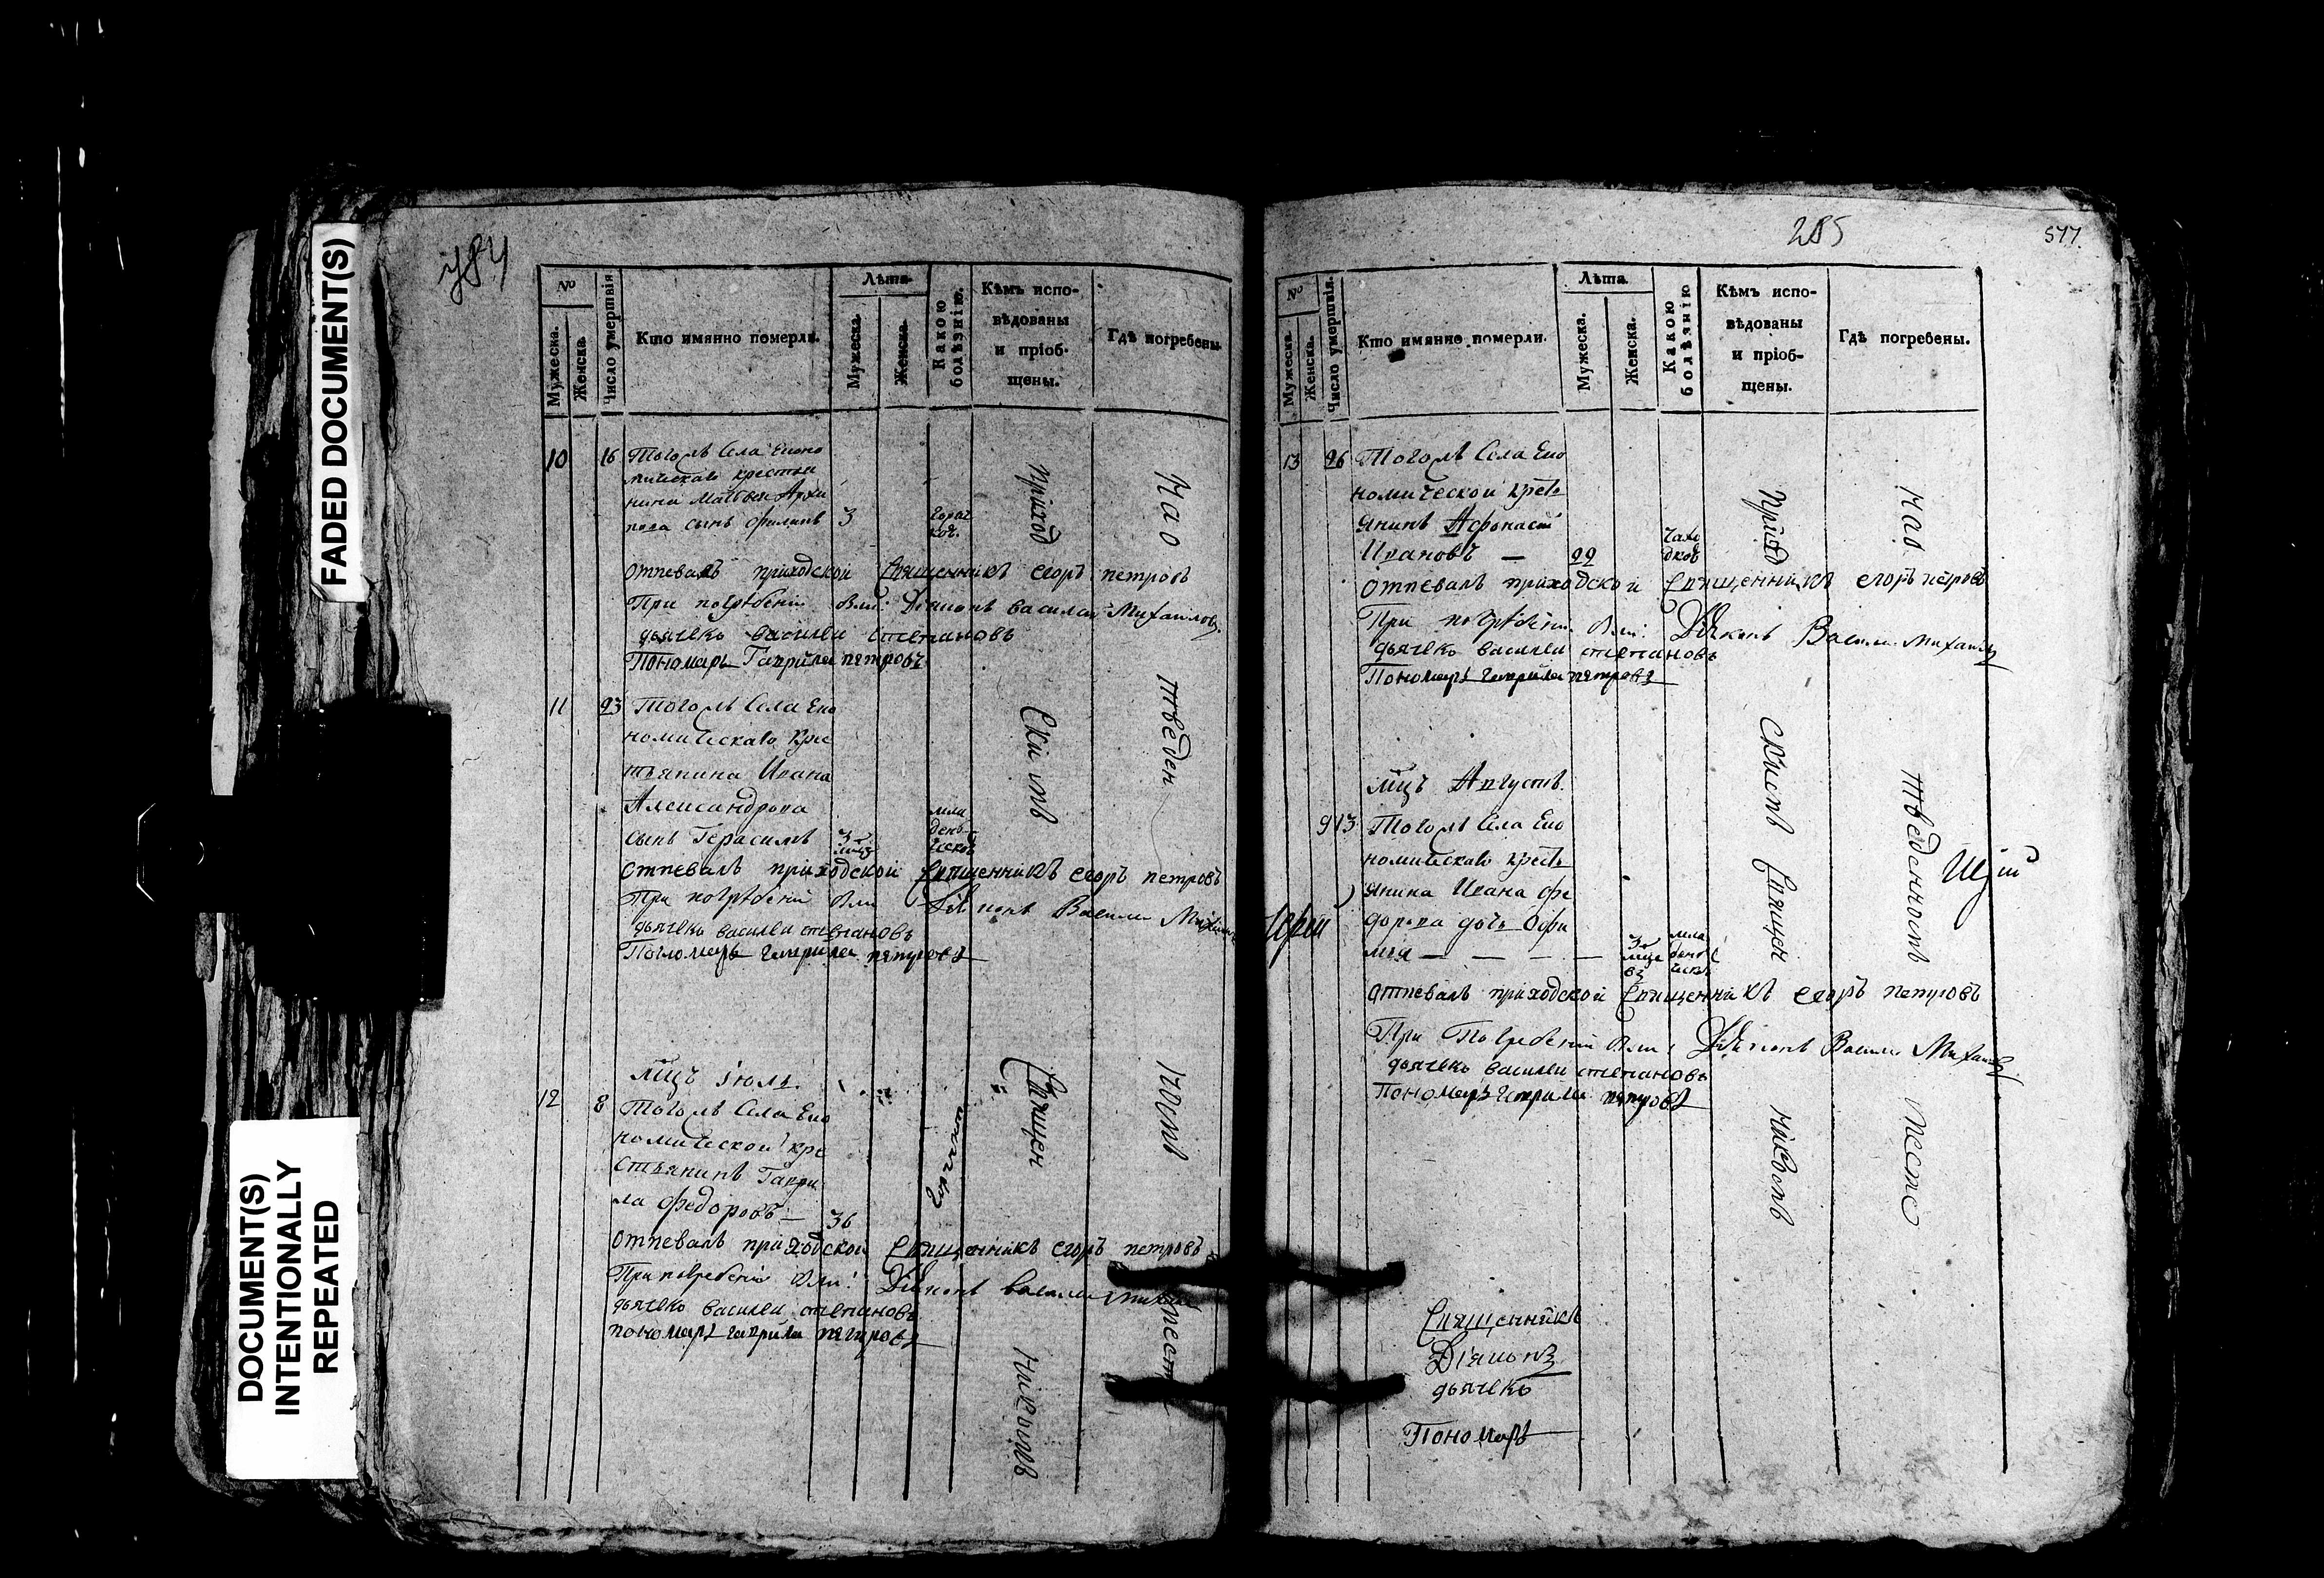 FADED DOCUMENT(S)
DOCUMENT(S)
INTENTIONALLY
REPEATED
№
Мужеска.
Женска.
Число умершвія
Кто имянно померли.
Лѣта
Мужеска.
Женска.
Какою
болѣзнію.
Кѣмъ испо-
вѣдованы
и пріоб-
щены.
Гдѣ погребены.
10 16 Тогожъ Села Еконо
мическаго крестья
нина Матвея Архи
пова сынъ Филипъ 3 горяч
коч.
Отпевалъ приходской Священникъ Егоръ Петровъ
При погребенiи были: Дiяконъ Василеи Михаиловъ
дьячекъ Василеи Степановъ
Пономарь Гаврила Петровъ
11 23 Тогожъ Села Еко
номическаго кре
стьянина Ивана
Александрова
сынъ Герасимъ 3 мла
день
ческ
Отпевалъ приходской Священникъ Егоръ Петровъ
При погребенiи были Дiяконъ Василеи
дьячекъ Василеи Степановъ
Пономарь Гаврила Петровъ
мцъ Iюль
12 8 Тогожъ Села Еко
номической кре
стьянинъ Гаври
ла Федоровъ — 36
Отпевалъ приходской Священникъ Егоръ Петровъ
При погребенiи были: Дiяконъ Василеи
дьячекъ Василеи Степановъ
Пономарь Гаврила Петровъ
Приход
скимъ
Священ
никомъ
На о
тведен
номъ
месте
285
577.
№
Мужеска.
Женска.
Число умершвія.
Кто имянно померли.
Лѣта
Мужеска.
Женска.
Какою
болѣзнію
Кѣмъ испо-
вѣдованы
и пріоб-
щены.
Гдѣ погребены.
13 26 Тогожъ Села Еко
номической кресть
янинъ Афонасiй
Ивановъ — 22 чахо
дкою
Отпевалъ приходской Священникъ Егоръ Петровъ
При погребенiи были: Дiяконъ Василеи Михаиловъ
дьячекъ Василеи Степановъ
Пономарь Гаврила Петровъ
мцъ Августъ
9 13 Тогожъ Села Еко
номическаго кресть
янина Ивана Фе
дорова дочь Офи
мiя — — — — 3 мла
денч
ческ
Отпевалъ приходской Священникъ Егоръ Петровъ
При Погребенiи были: Дiяконъ Василеи Михаиловъ
дьячекъ Василеи Степановъ
Пономарь Гаврила Петровъ
Приход
скимъ
Священ
никомъ
На о
тведенномъ
месте
Iерей
Священникъ
Дiяконъ
дьячекъ
Пономарь